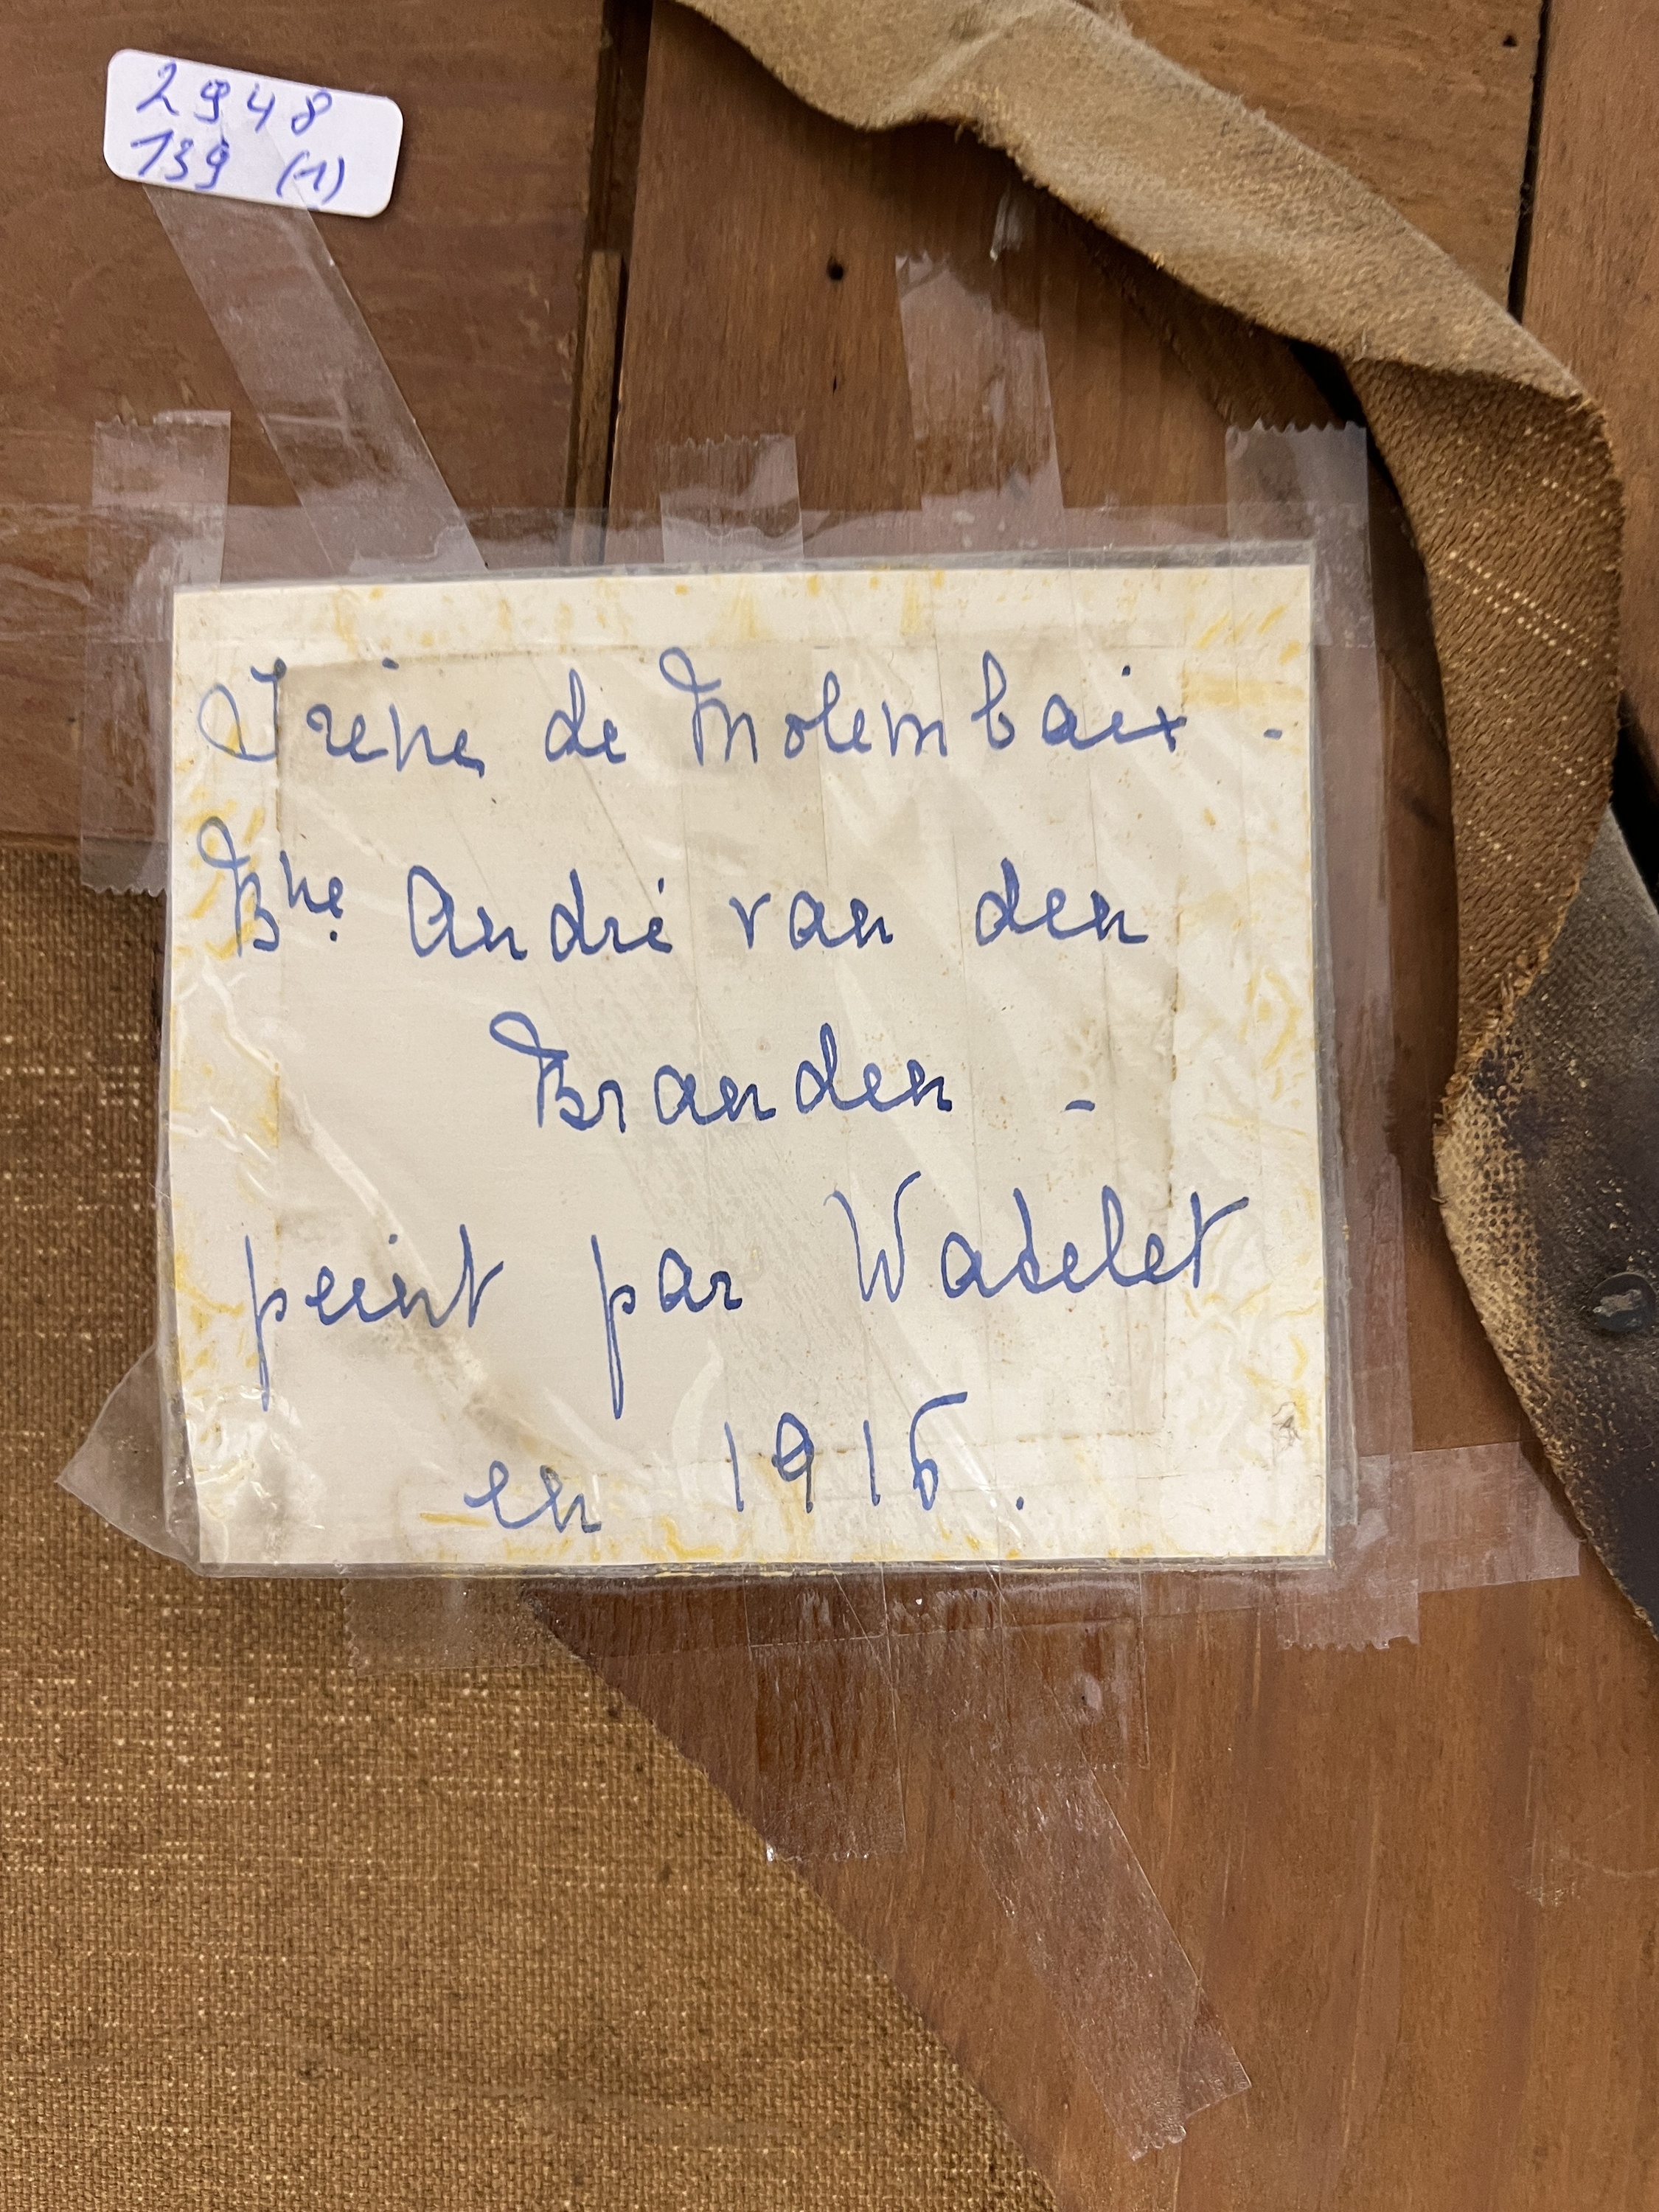 2948
139 (1)
Irène de Molembaix -
Bne. André van den
Branden -
peint par Watelet
en 1916.